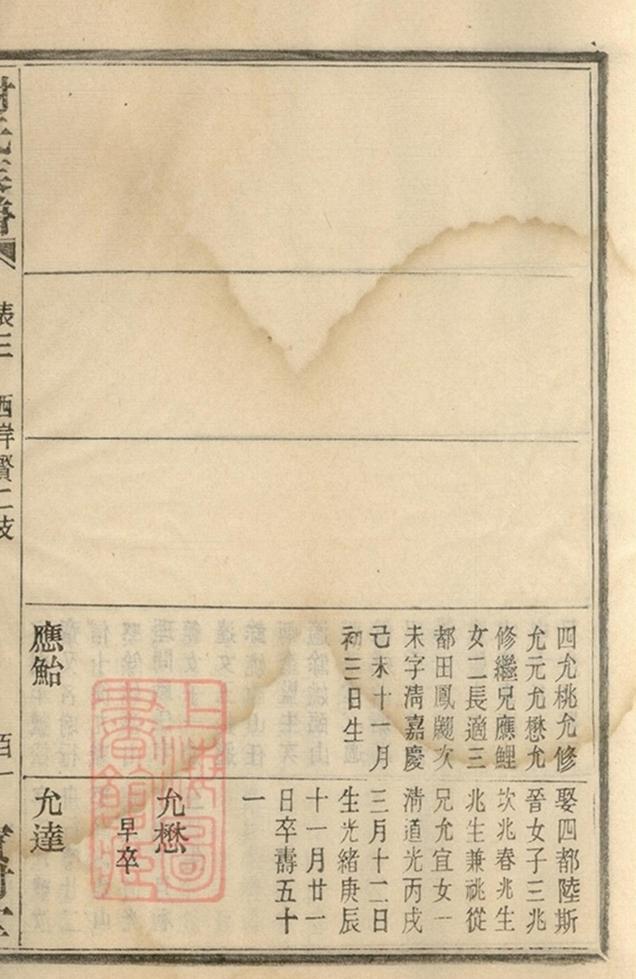 四允桃允修
允元允懋允
修繼兄應鯉
女二長適三
都田鳳颺次
未字清嘉慶
己未十一月
初三日生
應鮐
娶四都陸斯
晉女子三兆
坎兆春兆生
兆生兼祧從
兄允宜女一
清道光丙戌
三月十二日
生光緒庚辰
十一月廿一
日卒壽五十
一
允懋
早卒
允達
上海圖
書館藏
表三
西岸賢二枝